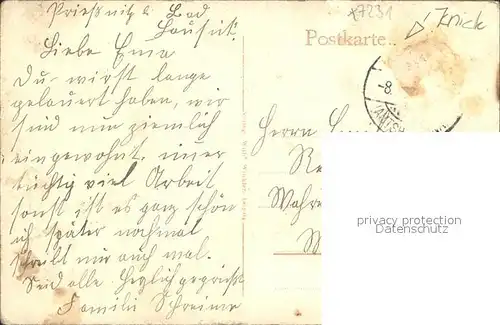 Prießnitz b. Bad
Lausick.
Liebe Erna
Du wirst lange
gelauert haben, wir
sind nun ziemlich
eingewohnt. immer
tüchtig viel Arbeit
sonst ist es ganz schön
ich später nochmal
schreibt mir auch mal.
Seid alle herzlich gegrüßt
Familie Schreiner
x7231
Knick
Postkarte.
-8.
Herrn
privacy protection
Datenschutz